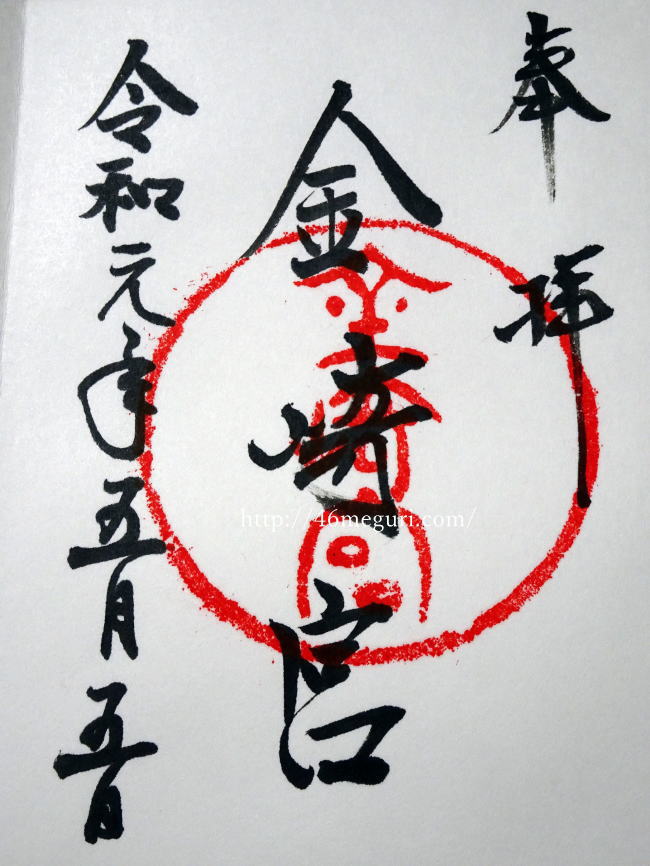 奉拝
金崎宮
令和元年五月五日
http://46meguri.com/